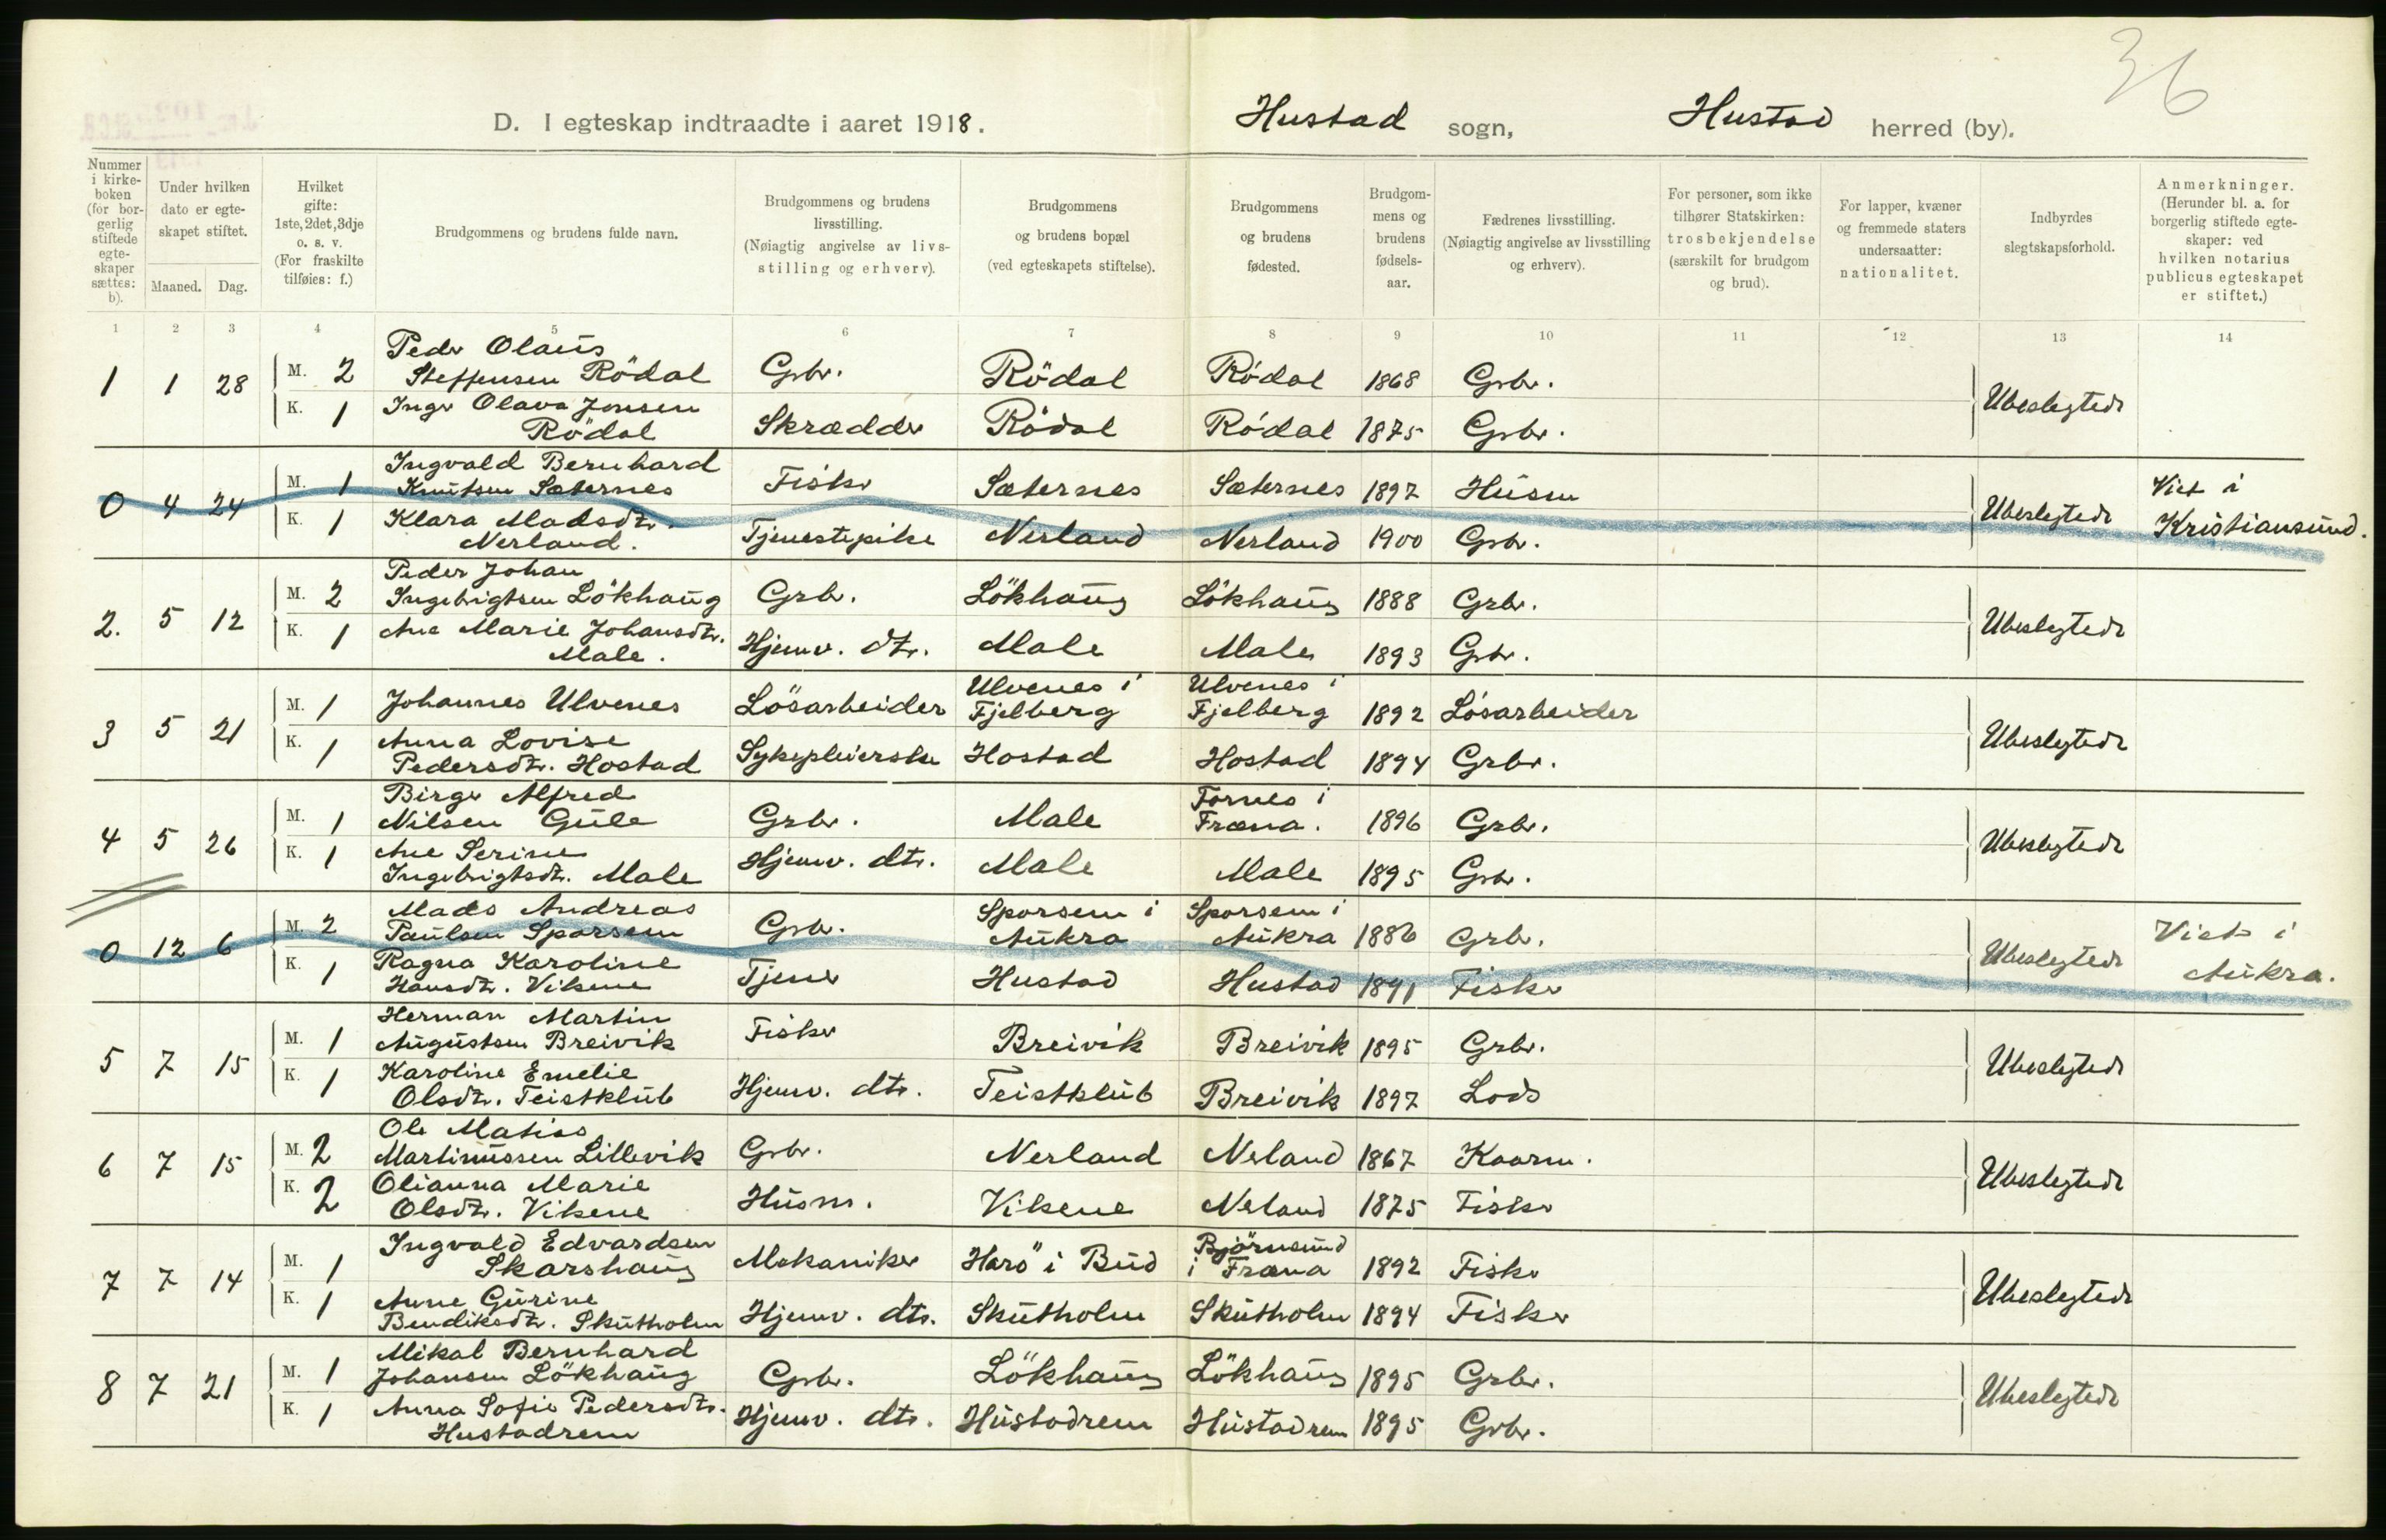 36
D. I egteskap indtraadte i aaret 1918. Hustad sogn, Hustad herred (by).
Nummer i kirkeboken (for borgerlig stiftede egteskaper sættes: b).
Under hvilken dato er egteskapet stiftet.
Maaned. Dag.
Hvilket gifte: 1ste, 2det, 3dje o. s. v. (For fraskilte tilføies: f.)
Brudgommens og brudens fulde navn.
Brudgommens og brudens livsstilling. (Nøiagtig angivelse av livsstilling og erhverv).
Brudgommens og brudens bopæl (ved egteskapets stiftelse).
Brudgommens og brudens fødested.
Brudgommens og brudens fødselsaar.
Fædrenes livsstilling. (Nøiagtig angivelse av livsstilling og erhverv).
For personer, som ikke tilhører Statskirken: trosbekjendelse (særskilt for brudgom og brud).
For lapper, kvæner og fremmede staters undersaatter: nationalitet.
Indbyrdes slegtskapsforhold.
Anmerkninger. (Herunder bl. a. for borgerlig stiftede egteskaper: ved hvilken notarius publicus egteskapet er stiftet.)
1 2 3 4 5 6 7 8 9 10 11 12 13 14
1 1 28 M. 2 Peder Olaus Steffensen Rödal Grbr. Rödal Rödal 1868 Grbr. Ubeslegtede
K. 1 Inger Olava Jonsen Rödal Skrædder Rödal Rödal 1875 Grbr.
0 4 24 M. 1 Ingvald Bernhard Knutsen Sæternes Fisker Sæternes Sæternes 1897 Husm Ubeslegtede Viet i Kristiansund.
K. 1 Klara Madsdtr. Nerland. Tjenestepike Nerland Nerland 1900 Grbr.
2. 5 12 M. 2 Peder Johan Ingebrigtsen Lökhaug Grbr. Lökhaug Lökhaug 1888 Grbr. Ubeslegtede
K. 1 Ane Marie Johansdtr. Male. Hjemv. dtr. Male Male 1893 Grbr.
3 5 21 M. 1 Johannes Ulvenes Lösarbeider Ulvenes i Fjelberg Ulvenes i Fjelberg 1892 Lösarbeider Ubeslegtede
K. 1 Anna Lovise Pedersdtr. Hostad Sykepleierske Hostad Hostad 1894 Grbr.
4 5 26 M. 1 Birger Alfred Nilsen Gule Grbr. Male Tornes i Fræna. 1896 Grbr. Ubeslegtede
K. 1 Ane Serine Ingebrigtsdt. Male Hjemv. dtr. Male Male 1895 Grbr.
0 12 6 M. 2 Mads Andreas Paulsen Sporsem Grbr. Sporsem i Aukra Sporsem i Aukra 1886 Grbr. Ubeslegtede Viet i Aukra.
K. 1 Ragna Karoline Hansdtr. Vikene Tjener Hustad Hustad 1891 Fisker
5 7 15 M. 1 Herman Martin Augustsen Breivik Fisker Breivik Breivik 1895 Grbr. Ubeslegtede
K. 1 Karoline Emelie Olsdtr. Teistklub Hjemv. dtr. Teistklub Breivik 1897 Lods
6 7 15 M. 2 Ole Matias Martinussen Lillevik Grbr. Nerland Nerland 1867 Kaarm. Ubeslegtede
K. 2 Olianna Marie Olsdtr. Vikene Husm. Vikene Nerland 1875 Fisker
7 7 14 M. 1 Ingvald Edvardsen Skarshaug Mekaniker Harö i Bud Björnsund i Fræna 1892 Fisker Ubeslegtede
K. 1 Anne Gurine Bendiksdtr. Skutholm Hjemv. dtr. Skutholm Skutholm 1894 Fisker
8 7 21 M. 1 Mikal Bernhard Johansen Lökhaug Grbr. Lökhaug Lökhaug 1895 Grbr. Ubeslegtede
K. 1 Anna Sofie Pedersdtr. Hustadrem Hjemv. dtr. Hustadrem Hustadrem 1895 Grbr.